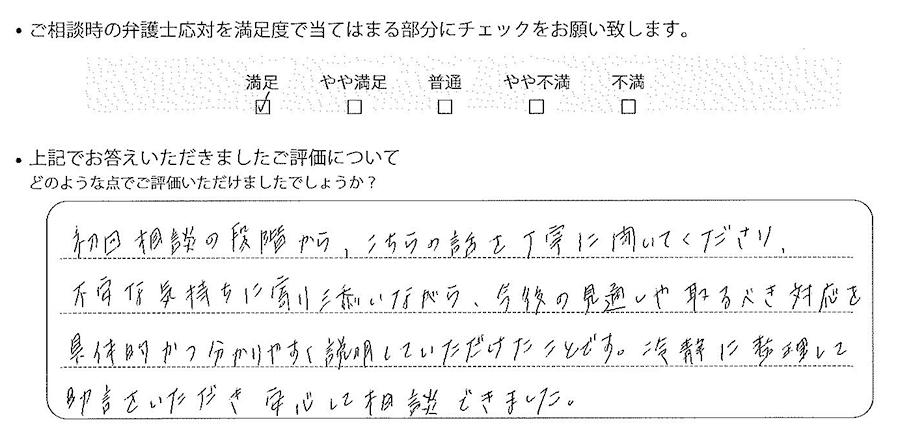 ・ご相談時の弁護士応対を満足度で当てはまる部分にチェックをお願い致します。
満足 やや満足 普通 やや不満 不満
☑ □ □ □ □
・上記でお答えいただきましたご評価について
どのような点でご評価いただけましたでしょうか？
初回相談の段階から、こちらの話を丁寧に聞いてくださり、
不安な気持ちに寄り添いながら、今後の見通しや取るべき対応を
具体的かつ分かりやすく説明していただけたことです。冷静に整理して
助言をいただき安心して相談できました。